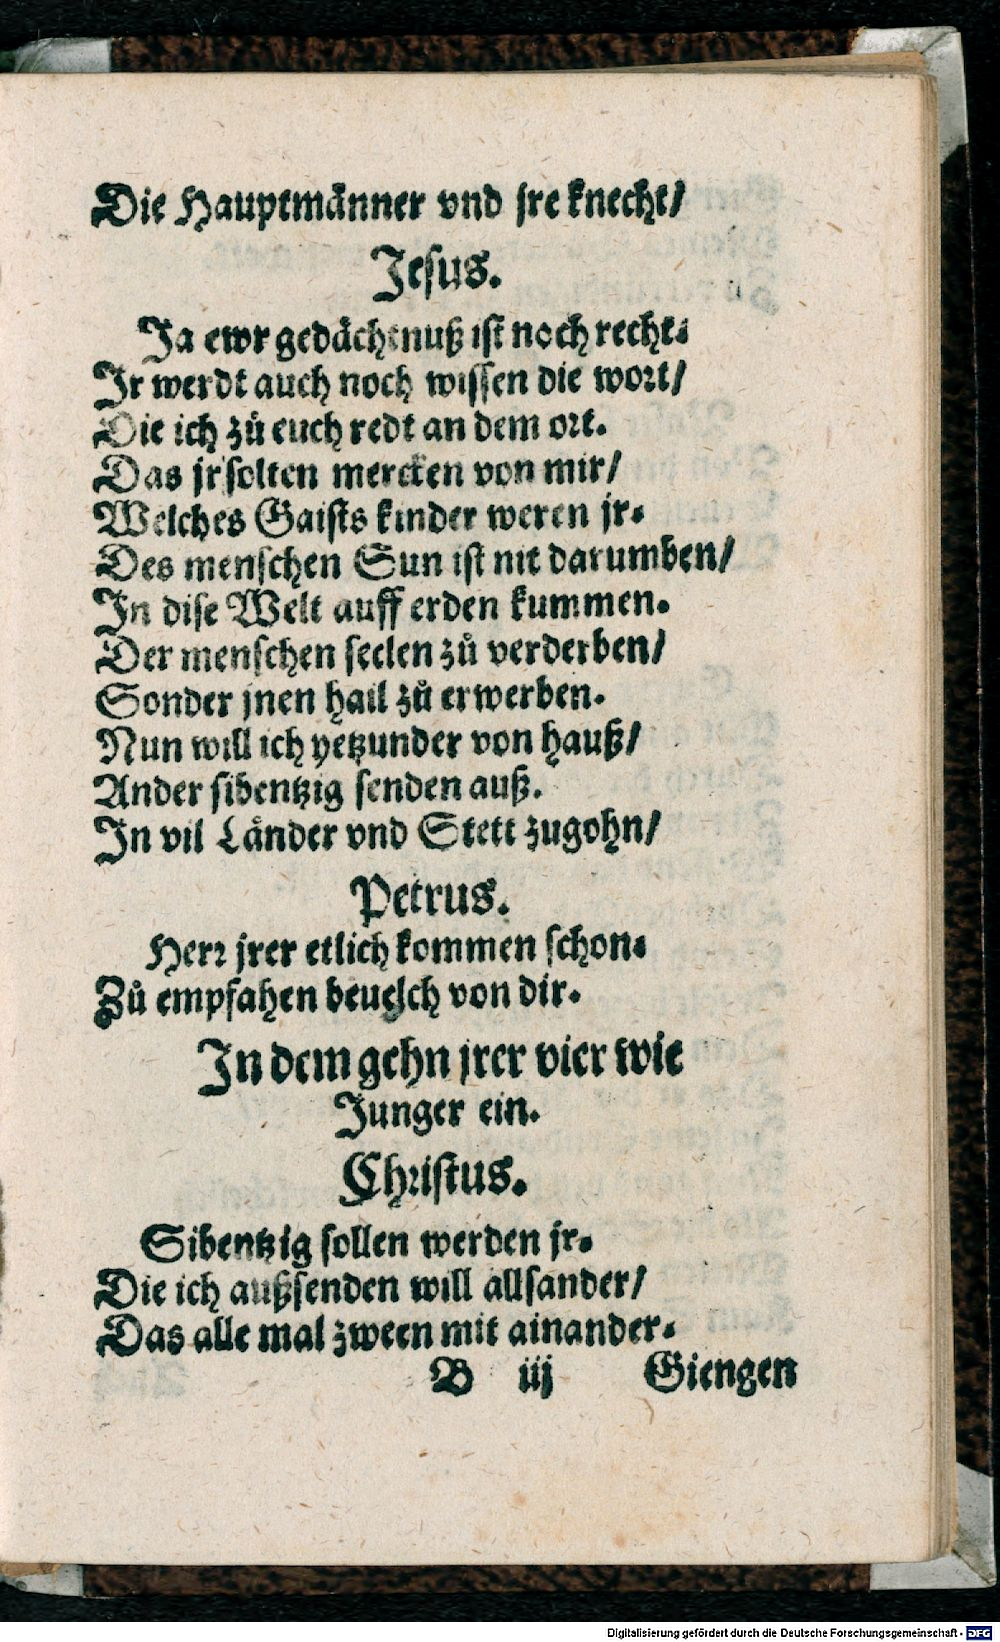 Die Hauptmänner vnd jre knecht/
Jesus.
Ja ewr gedächtnuß ist noch recht.
Jr werdt auch noch wissen die wort/
Die ich zů euch redt an dem ort.
Das jr solten mercken von mir/
Welches Gaists kinder weren jr.
Des menschen Sun ist nit darumben/
In dise Welt auff erden kummen.
Der menschen seelen zů verderben/
Sonder jnen hail zů erwerben.
Nun will ich yetzunder von hauß/
Ander sibentzig senden auß.
In vil Länder vnd Stett zugohn/
Petrus.
Herr jrer etlich kommen schon.
Zů empfahen beuelch von dir.
In dem gehn jrer vier wie
Junger ein.
Christus.
Sibentzig sollen werden jr.
Die ich außsenden will allsander/
Das alle mal zween mit ainander.
B iij Giengen
Digitalisierung gefördert durch die Deutsche Forschungsgemeinschaft - DFG